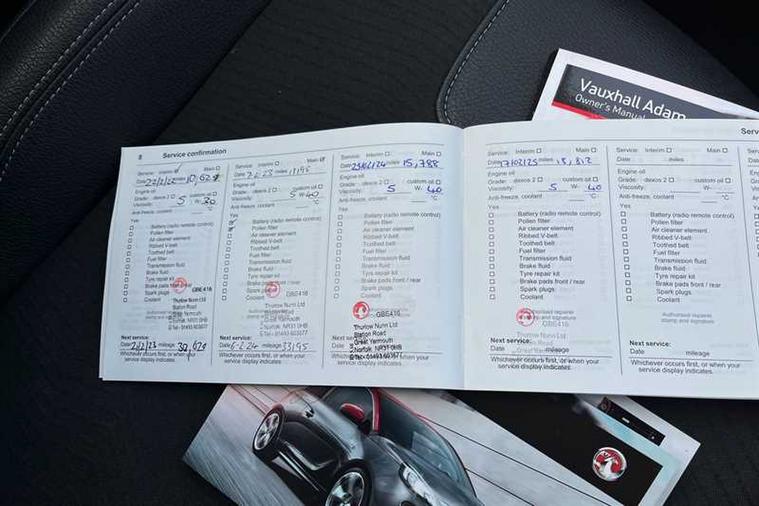 Vauxhall Adam
Owner's Manual
8 Service confirmation
Service: Interim Main
Date miles 10,628
Engine oil
Grade: dexos 2 custom oil
Viscosity: 5 W- 30
Anti-freeze, coolant °C
Yes
Battery (radio remote control)
Pollen filter
Air cleaner element
Ribbed V-belt
Toothed belt
Fuel filter
Transmission fluid
Brake fluid
Tyre repair kit
Brake pads front / rear
Spark plugs
Coolant
GBE416
Thurlow Nunn Ltd
Station Road
Great Yarmouth
Norfolk NR31 0HB
Tel - 01493 603677
Next service:
Date 2/2/23 mileage
Whichever occurs first, or when your
service display indicates.
Service: Interim Main
Date miles
Engine oil
Grade: dexos 2 custom oil
Viscosity: 5 W- 40
Anti-freeze, coolant °C
Yes
Battery (radio remote control)
Pollen filter
Air cleaner element
Ribbed V-belt
Toothed belt
Fuel filter
Transmission fluid
Brake fluid
Tyre repair kit
Brake pads front / rear
Spark plugs
Coolant
GBE416
Thurlow Nunn Ltd
Station Road
Great Yarmouth
Norfolk NR31 0HB
Tel - 01493 603677
Next service:
Date 6.2.24 mileage 33195
Whichever occurs first, or when your
service display indicates.
Service: Interim Main
Date miles 15,788
Engine oil
Grade: dexos 2 custom oil
Viscosity: 5 W- 40
Anti-freeze, coolant °C
Yes
Battery (radio remote control)
Pollen filter
Air cleaner element
Ribbed V-belt
Toothed belt
Fuel filter
Transmission fluid
Brake fluid
Tyre repair kit
Brake pads front / rear
Spark plugs
Coolant
GBE416
Thurlow Nunn Ltd
Station Road
Great Yarmouth
Norfolk NR31 0HB
Tel - 01493 603677
Whichever occurs first, or when your
service display indicates.
Service: Interim Main
Date 17/02/25 miles 18,812
Engine oil
Grade: dexos 2 custom oil
Viscosity: 5 W- 40
Anti-freeze, coolant °C
Yes
Battery (radio remote control)
Pollen filter
Air cleaner element
Ribbed V-belt
Toothed belt
Fuel filter
Transmission fluid
Brake fluid
Tyre repair kit
Brake pads front / rear
Spark plugs
Coolant
Authorised repairer
stamp and signature
GBE416
Thurlow Nunn Ltd
Station Road
Great Yarmouth
Next service:
Date mileage
Whichever occurs first, or when your
service display indicates.
Service: Interim Main
Date miles
Engine oil
Grade: dexos 2 custom oil
Viscosity: W-
Anti-freeze, coolant °C
Yes
Battery (radio remote control)
Pollen filter
Air cleaner element
Ribbed V-belt
Toothed belt
Fuel filter
Transmission fluid
Brake fluid
Tyre repair kit
Brake pads front / rear
Spark plugs
Coolant
Authorised repairer
stamp and signature
Next service:
Date mileage
Whichever occurs first, or when your
service display indicates.